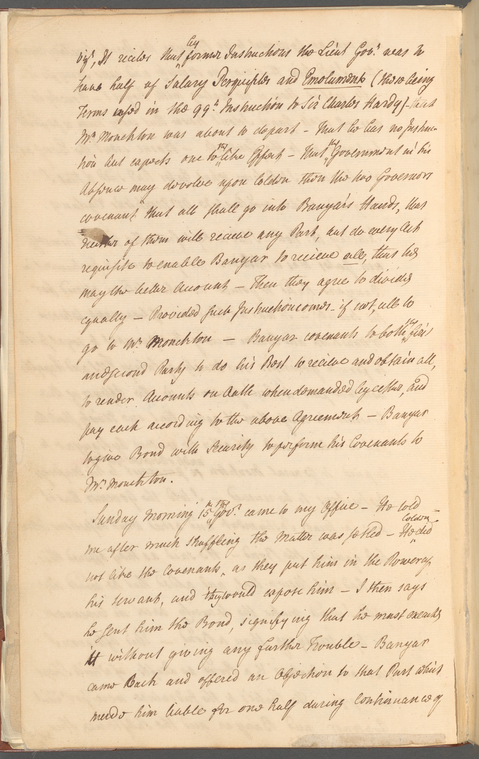 vizt, It recites that by former Instructions the Lieut Govr was to
have half of Salary Perquisites and Emoluments (these being
Terms used in the 99th Instruction to Sir Charles Hardy) that
Mr Monckton was about to depart - That he has no Instruc-
tion but expects one to the like Effect - That the Government in his
Absence may devolve upon Colden then the two Governors
covenant that all shall go into Banyar's Hands, that
neither of them will receive any Part, but do every Act
requisite to enable Banyar to receive all, that he
may the better Account - Then they agree to divide
equally - Provided such Instruction comes - if not, all to
go to Mr Monckton - Banyar covenants to both the first
and second Party to do his Best to receive and obtain all,
to render Accounts on Oath when demanded by either, and
pay each according to the above Agreement - Banyar
to give Bond with Security to perform his Covenants to
Mr Monckton.
Sunday Morning 15th the Govr came to my Office - He told
me after much shuffling the Matter was settled - He Colden did
not like the Covenants, as they put him in the Power of
his Servant, and they would expose him - I then says
he sent him the Bond, signifying that he must execute
it without giving any further Trouble - Banyar
came Back and offered an Objection to that Part which
made him liable for one half during continuance of